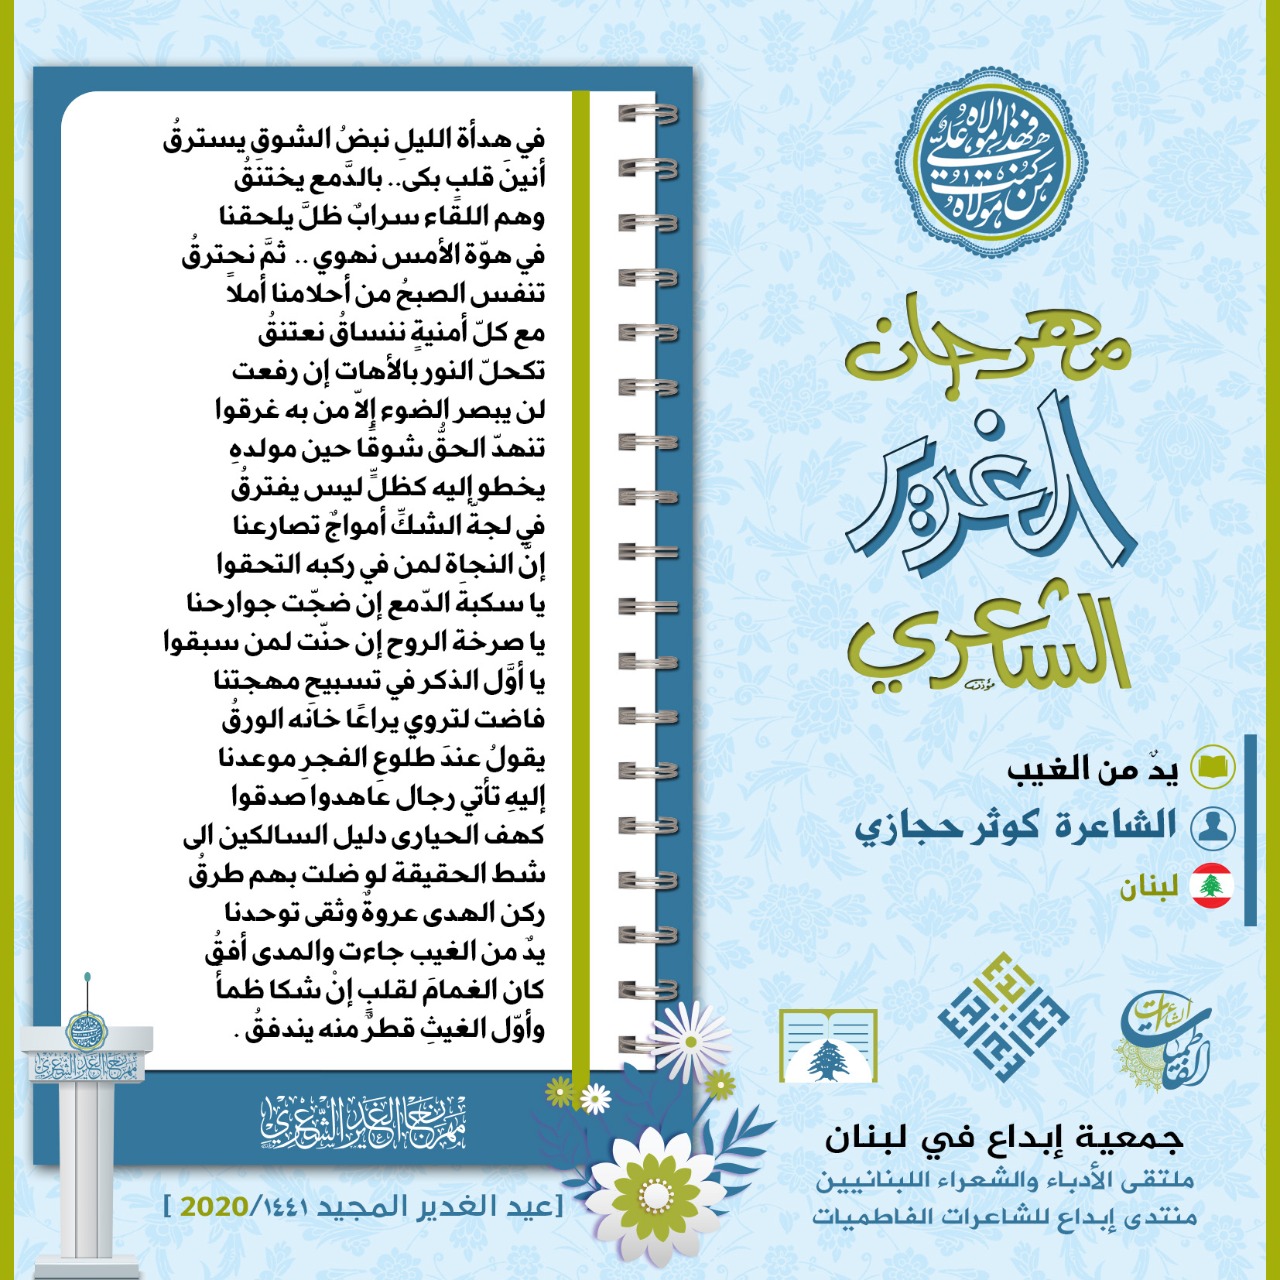 من كنت مولاه
فهذا علي مولاه
مهرجان
الغدير
الشعري
يدٌ من الغيب
الشاعرة كوثر حجازي
لبنان
في هدأة الليلِ نبضُ الشوقِ يسترقُ
أنينَ قلبٍ بكى.. بالدَّمع يختنقُ
وهم اللقاء سرابٌ ظلَّ يلحقنا
في هوّة الأمس نهوي .. ثمَّ نحترقُ
تنفس الصبحُ من أحلامنا أملاً
مع كلّ أمنيةٍ ننساقُ نعتنقُ
تكحلّ النور بالأهات إن رفعت
لن يبصر الضوء إلاّ من به غرقوا
تنهدّ الحقُّ شوقًا حين مولدهِ
يخطو إليه كظلٍّ ليس يفترقُ
في لجةّ الشكِّ أمواجٌ تصارعنا
إنَّ النجاة لمن في ركبه التحقوا
يا سكبةَ الدّمع إن ضجّت جوارحنا
يا صرخة الروح إن حنّت لمن سبقوا
يا أوَّل الذكر في تسبيحِ مهجتنا
فاضت لتروي يراعًا خانه الورقُ
يقولُ عندَ طلوعِ الفجرِ موعدنا
إليهِ تأتي رجال عاهدوا صدقوا
كهف الحيارى دليل السالكين الى
شط الحقيقة لو ضلت بهم طرقُ
ركن الهدى عروةٌ وثقى توحدنا
يدٌ من الغيب جاءت والمدى أفقُ
كان الغمامَ لقلبٍ إنْ شكا ظمأً
وأوّل الغيثِ قطرٌ منه يندفقُ .
مهرجان الغدير الشعري
مهرجان الغدير الشعري
[عيد الغدير المجيد ١٤٤١/2020 ]
إبداع
الشاعرات
الفاطميات
جمعية إبداع في لبنان
ملتقى الأدباء والشعراء اللبنانيين
منتدى إبداع للشاعرات الفاطميات